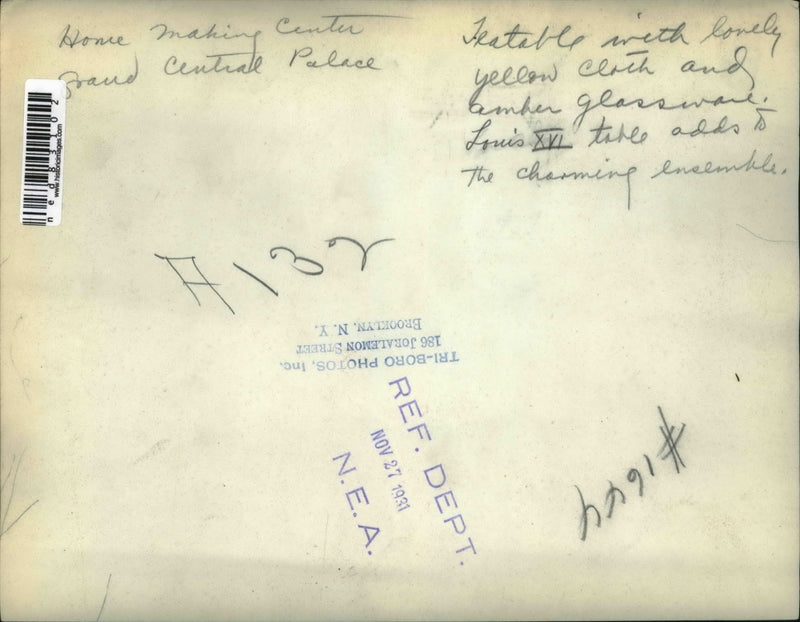 Home Making Center
Grand Central Palace
Teatable with lovely
yellow cloth and
amber glassware.
Louis XVI table adds to
the charming ensemble.
ned83102
www.historicimages.com
A132
TRI-BORO PHOTOS, Inc.
186 JORALEMON STREET
BROOKLYN, N. Y.
REF. DEPT.
NOV 27 1931
N.E.A.
#1644